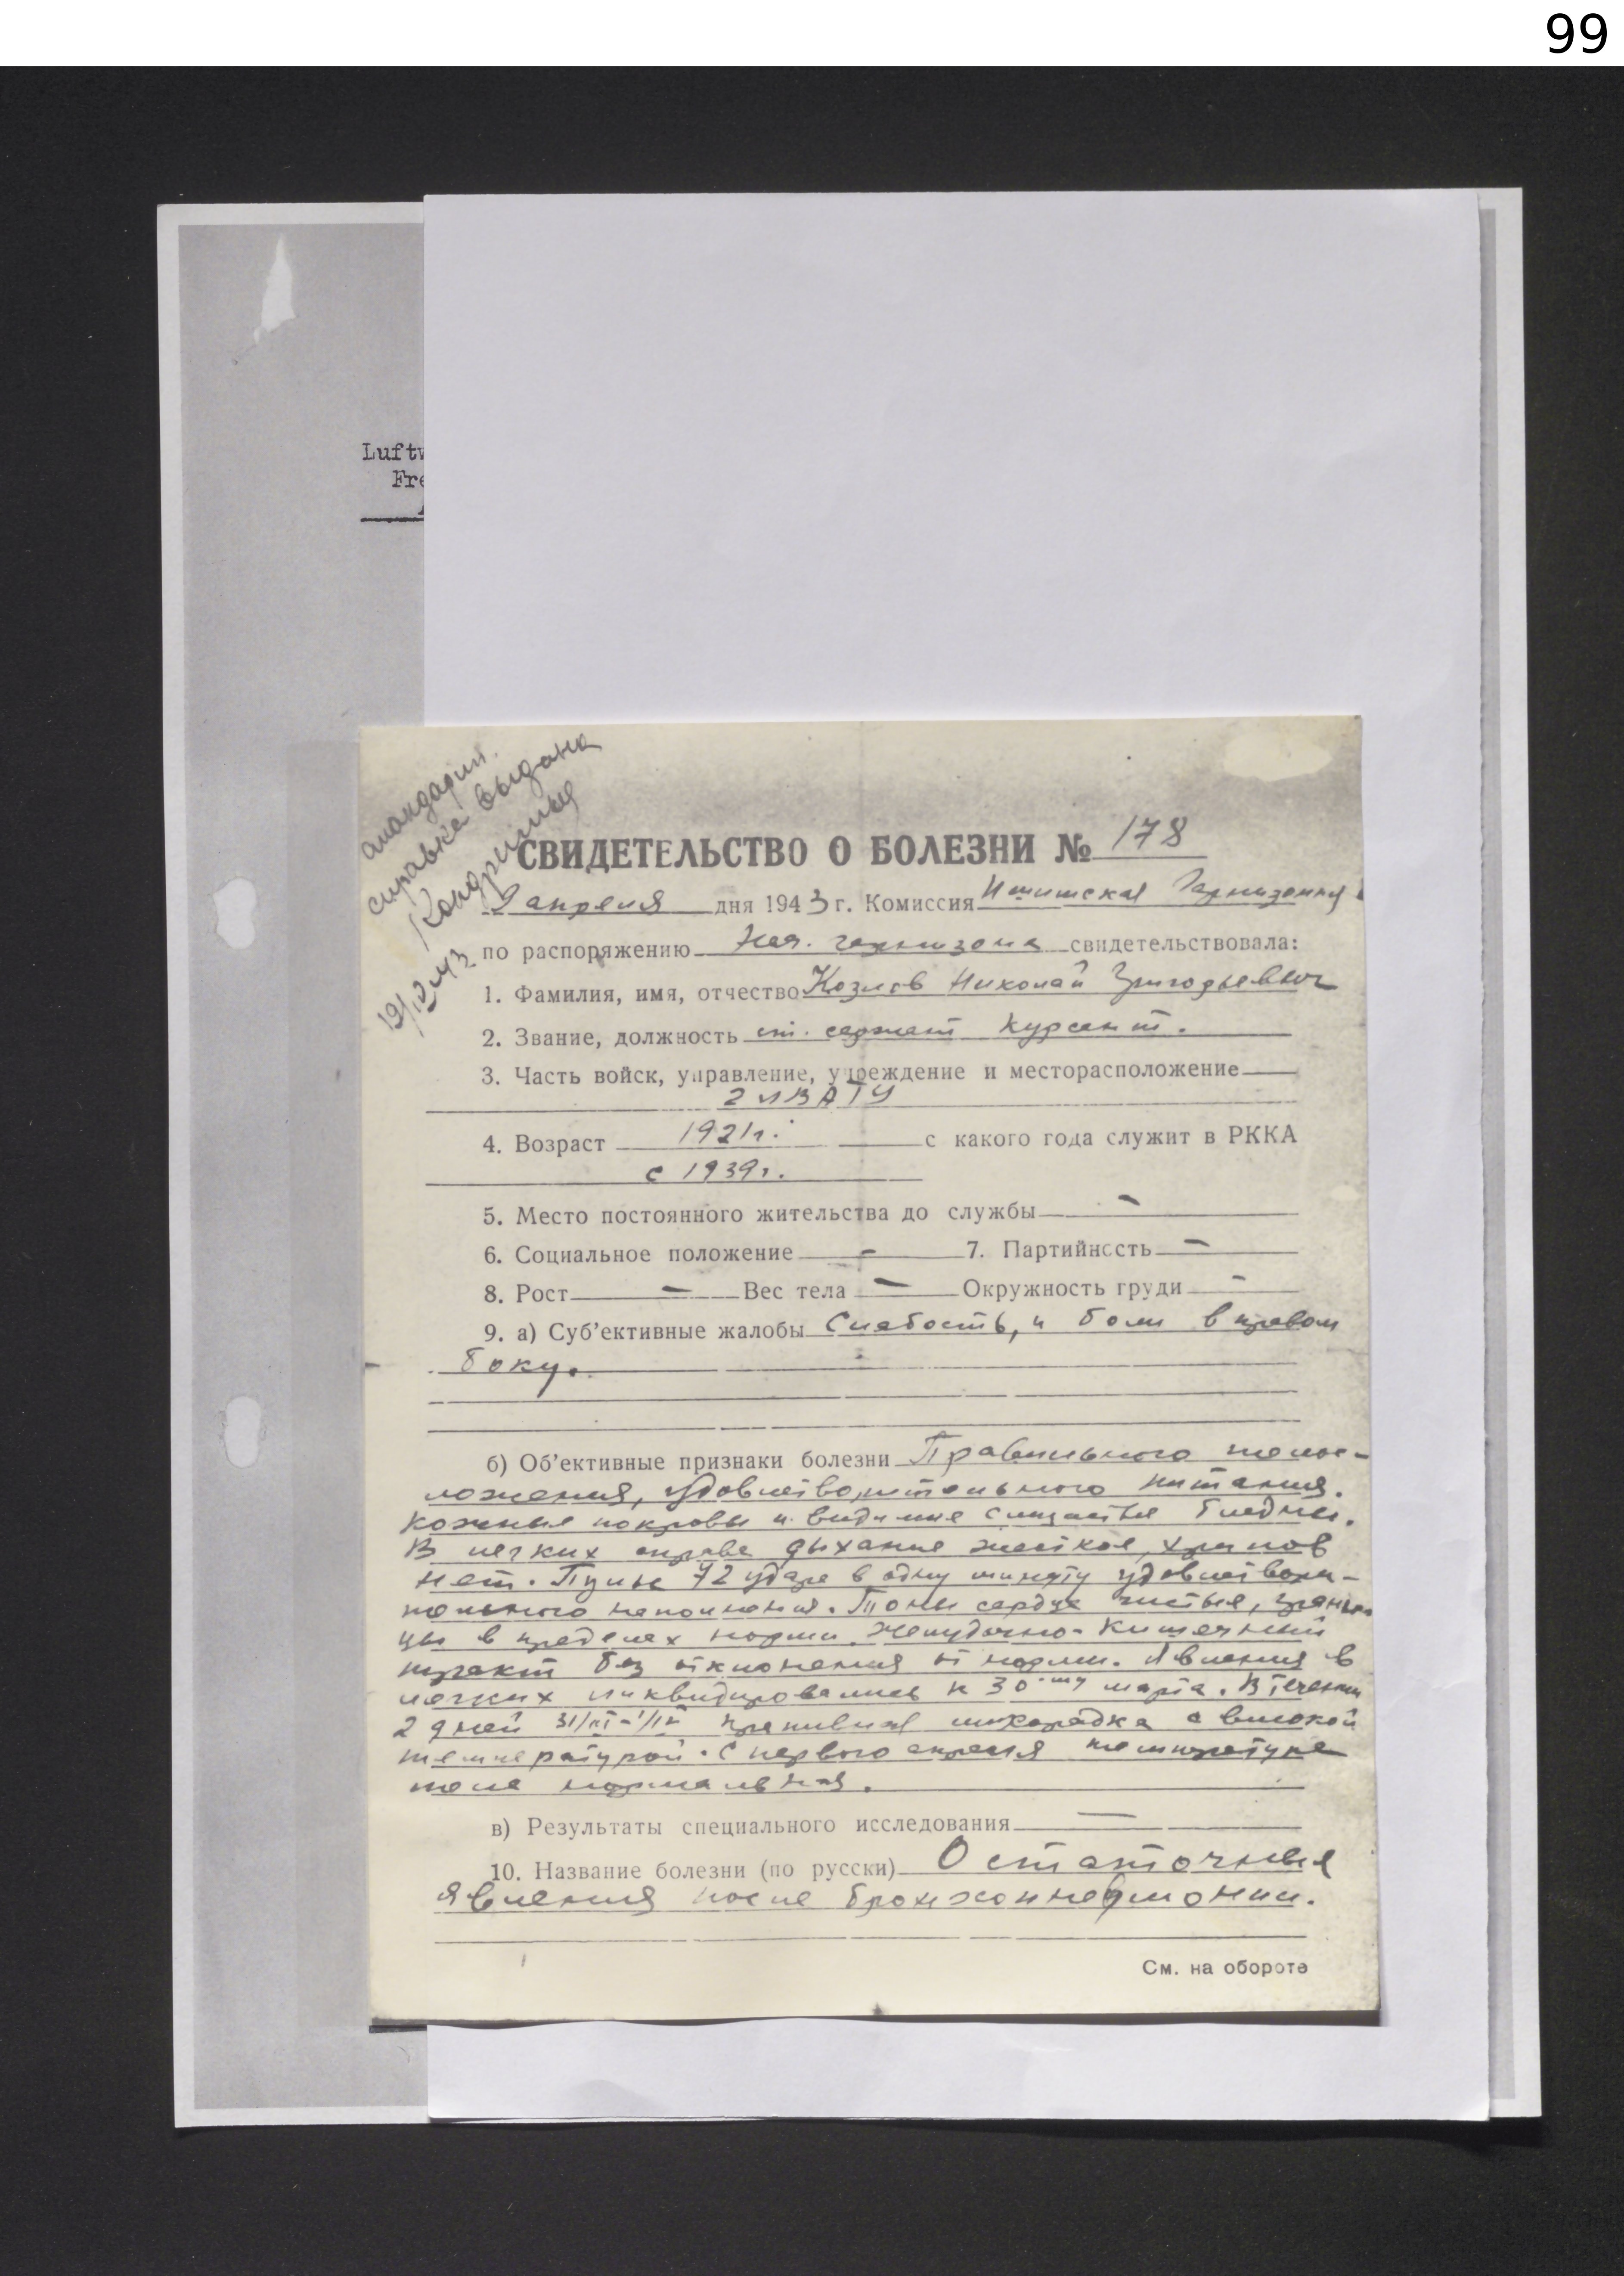 99
Luftw
Fre
справка выдана
19/12 43
СВИДЕТЕЛЬСТВО О БОЛЕЗНИ № 178
9 апреля дня 1943 г. Комиссия Ишимская Гарнизонная
по распоряжению Нач. гарнизона свидетельствовала:
1. Фамилия, имя, отчество Козлов Николай Григорьевич
2. Звание, должность ст. сержант курсант.
3. Часть войск, управление, учреждение и месторасположение
2 ЛВАТУ
4. Возраст 1921г. с какого года служит в РККА
с 1939г.
5. Место постоянного жительства до службы —
6. Социальное положение - 7. Партийность —
8. Рост — Вес тела — Окружность груди -
9. а) Суб'ективные жалобы Слабость, и боли в правом
боку.
б) Об'ективные признаки болезни Правильного телос-
ложения, удовлетворительного питания.
Кожные покровы и видимые слизистые бледны.
В легких справа дыхание жесткое, хрипов
нет. Пульс 72 удара в одну минуту удовлетвори-
тельного наполнения. Тоны сердца чистые, грани-
цы в пределах нормы. Желудочно-кишечный
тракт без отклонения от нормы. Явления в
легких ликвидировались к 30-му марта. В течении
2 дней 31/III-1/IV лихорадка с высокой
температурой. С первого апреля температура
тела нормальная.
в) Результаты специального исследования —
10. Название болезни (по русски) Остаточные
явления после бронхопневмонии.
См. на обороте